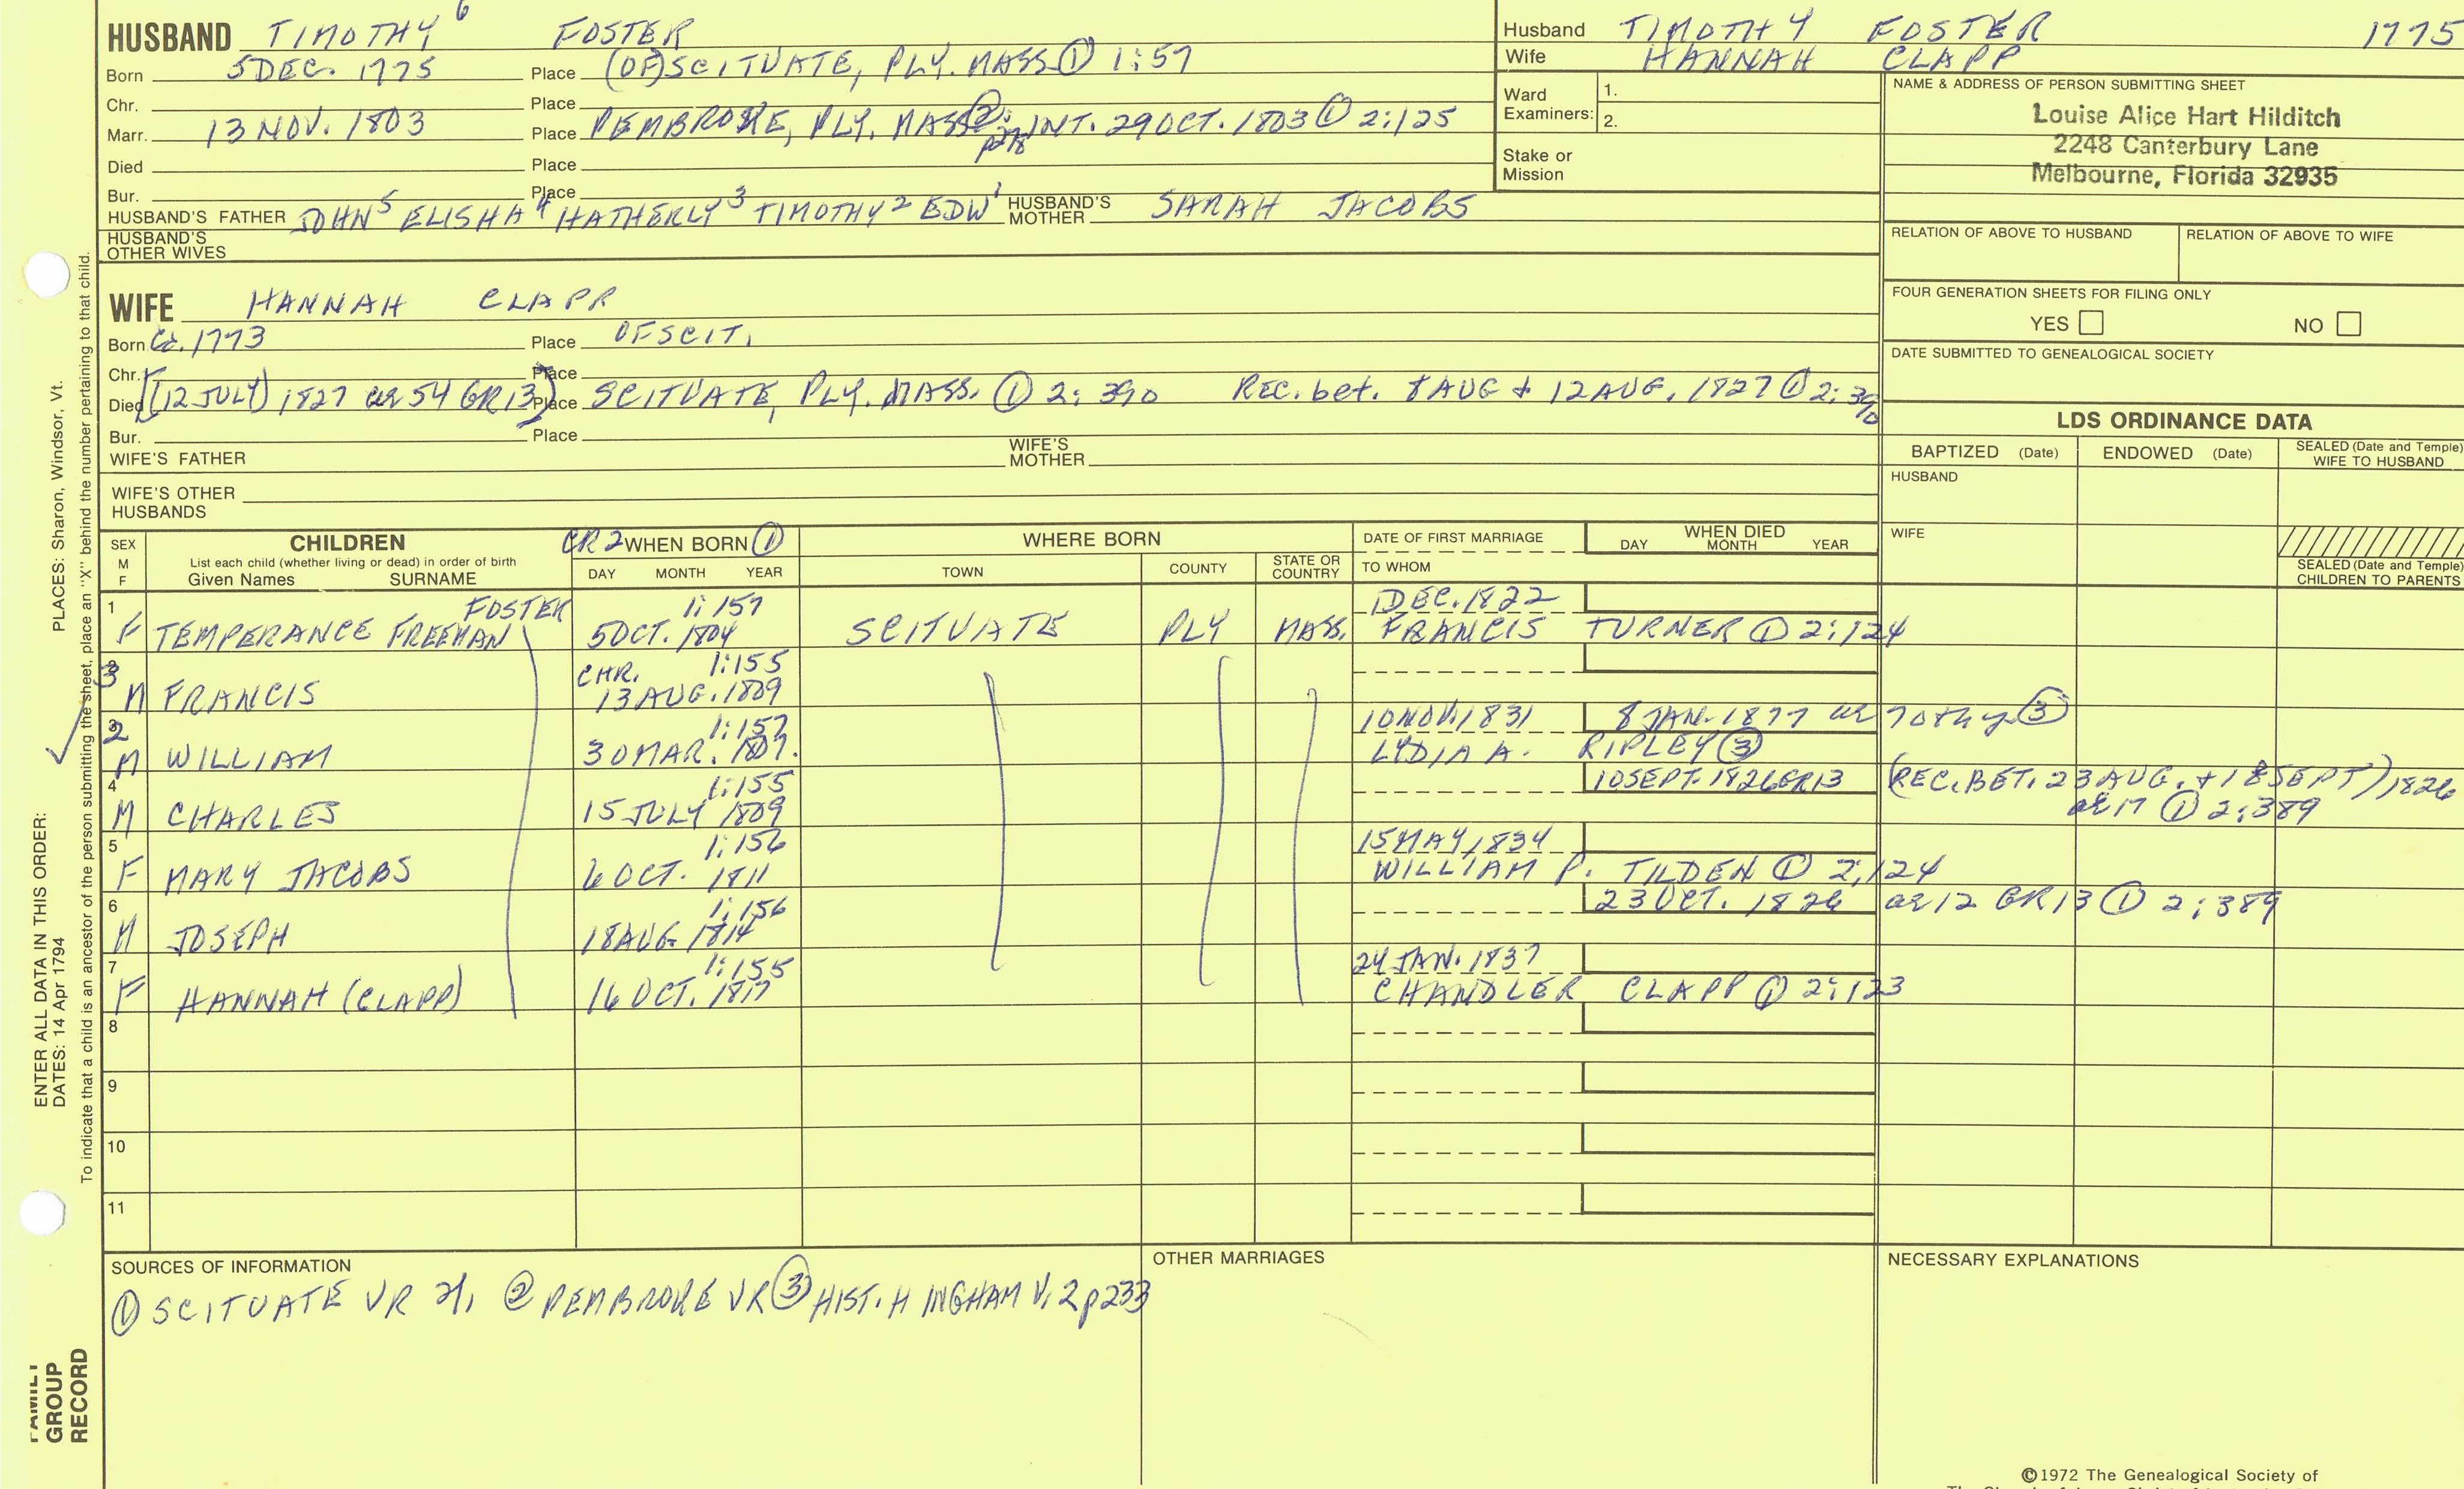 HUSBAND TIMOTHY 6 FOSTER
Born 5 DEC. 1775 Place (OF) SCITUATE, PLY. MASS ① 1:57
Chr. Place
Marr. 13 NOV. 1803 Place PEMBROKE, PLY. MASS ②: p278 INT. 29 OCT. 1803 ① 2:125
Died Place
Bur. Place
HUSBAND'S FATHER JOHN 5 ELISHA 4 HATHERLY 3 TIMOTHY 2 EDW 1 HUSBAND'S MOTHER SARAH JACOBS
HUSBAND'S OTHER WIVES
Husband TIMOTHY FOSTER 1775
Wife HANNAH CLAPP
Ward Examiners: 1.
2.
Stake or Mission
NAME & ADDRESS OF PERSON SUBMITTING SHEET
Louise Alice Hart Hilditch
2248 Canterbury Lane
Melbourne, Florida 32935
RELATION OF ABOVE TO HUSBAND RELATION OF ABOVE TO WIFE
FOUR GENERATION SHEETS FOR FILING ONLY
YES NO
DATE SUBMITTED TO GENEALOGICAL SOCIETY
WIFE HANNAH CLAPP
Born Ca. 1773 Place OF SCIT.
Chr. Place
Died [(12 JULY) 1827 ae 54 GR13] Place SCITUATE, PLY. MASS. ① 2:390 REC. bet. 8 AUG + 12 AUG, 1827 ① 2:390
Bur. Place
WIFE'S FATHER WIFE'S MOTHER
WIFE'S OTHER HUSBANDS
LDS ORDINANCE DATA
BAPTIZED (Date) ENDOWED (Date) SEALED (Date and Temple) WIFE TO HUSBAND
HUSBAND
WIFE
SEALED (Date and Temple) CHILDREN TO PARENTS
SEX M F
CHILDREN
List each child (whether living or dead) in order of birth
Given Names SURNAME
CR2 WHEN BORN ①
DAY MONTH YEAR
WHERE BORN
TOWN COUNTY STATE OR COUNTRY
DATE OF FIRST MARRIAGE
TO WHOM
WHEN DIED
DAY MONTH YEAR
1 FOSTER 1:157 DEC. 1822
F TEMPERANCE FREEMAN 5 OCT. 1804 SCITUATE PLY MASS. FRANCIS TURNER ① 2:124
3 CHR. 1:155
M FRANCIS 13 AUG. 1809
2 1:157 10 NOV. 1831 8 JAN. 1877 ae 70thy ③
M WILLIAM 30 MAR. 1807. LYDIA A. RIPLEY ③
4 1:155 10 SEPT. 1826 GR13 (REC. BET. 23 AUG. + 18 SEPT) 1826
M CHARLES 15 JULY 1809 ae 17 ① 2:389
5 1:156 15 MAY 1834
F MARY JACOBS 6 OCT. 1811 WILLIAM P. TILDEN ① 2:124
6 1:156 23 OCT. 1826 ae 12 GR13 ① 2:389
M JOSEPH 18 AUG 1814
7 1:155 24 JAN. 1837
F HANNAH (CLAPP) 16 OCT. 1817 CHANDLER CLAPP ① 2:123
8
9
10
11
SOURCES OF INFORMATION
① SCITUATE VR ② PEMBROKE VR ③ HIST. HINGHAM V. 2 p233
OTHER MARRIAGES
NECESSARY EXPLANATIONS
©1972 The Genealogical Society of
PLACES: Sharon, Windsor, Vt.
ENTER ALL DATA IN THIS ORDER:
DATES: 14 Apr 1794
To indicate that a child is an ancestor of the person submitting the sheet, place an "X" behind the number pertaining to that child.
FAMILY GROUP RECORD